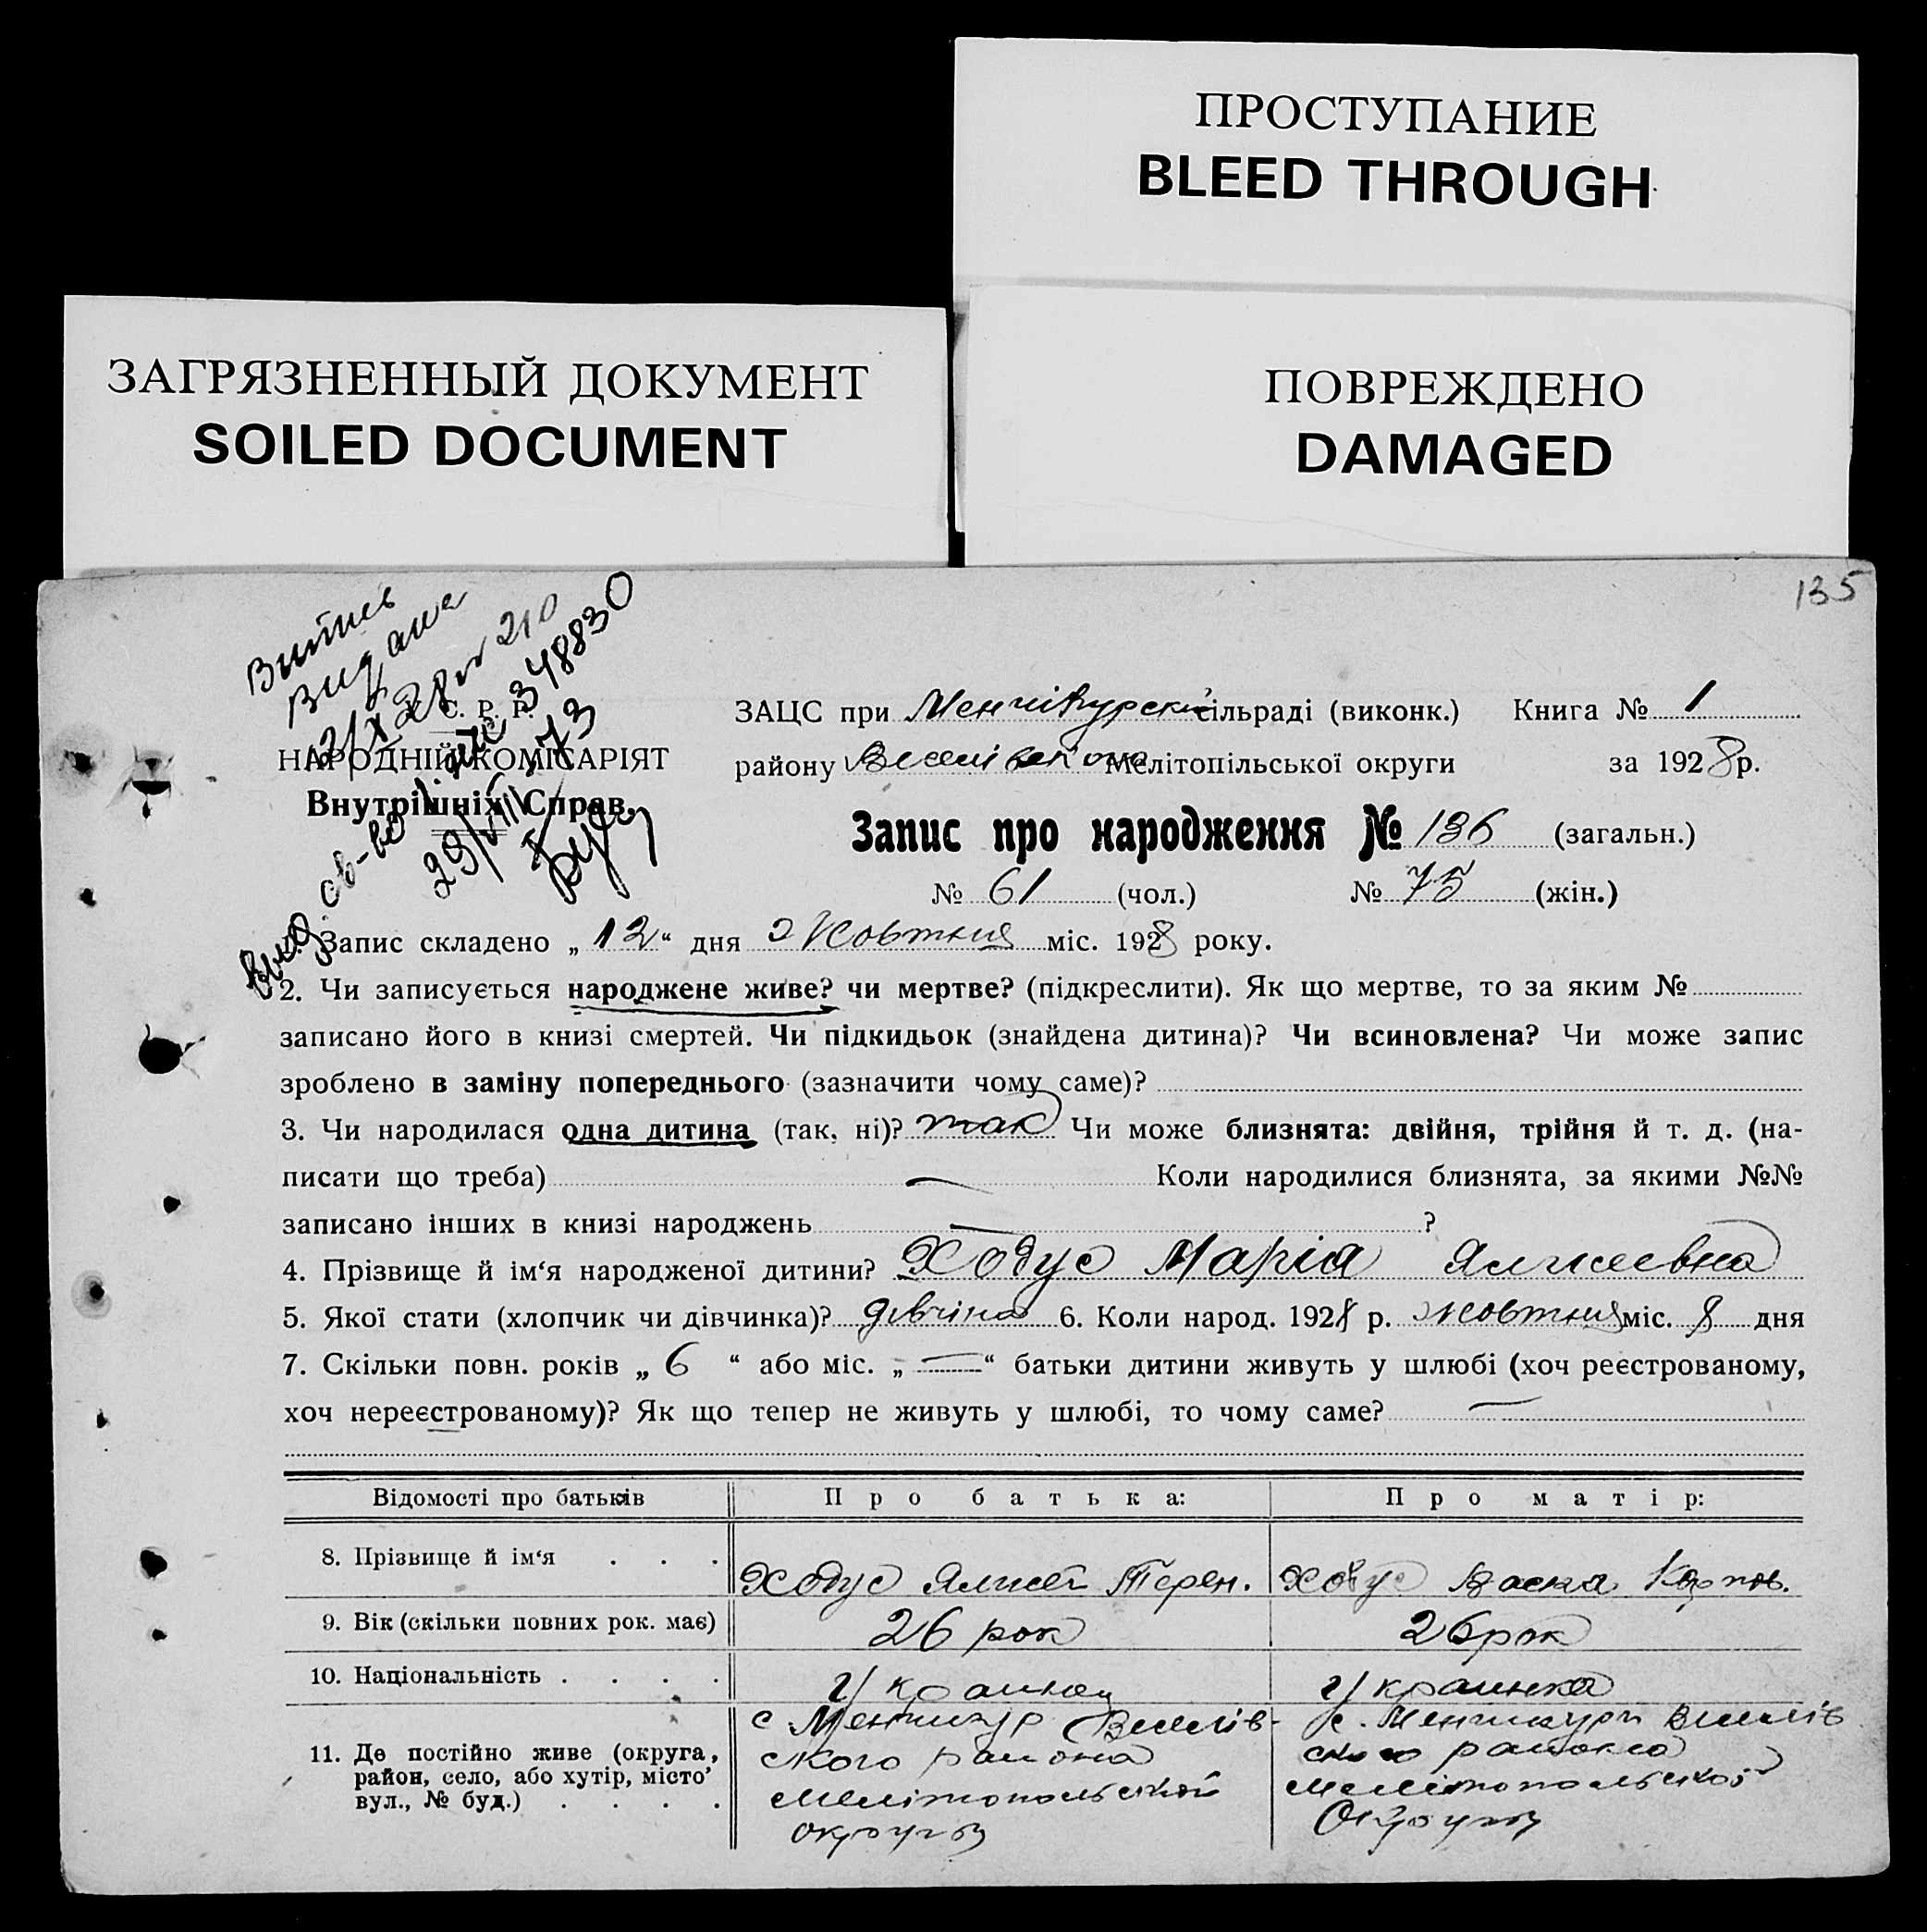 ПРОСТУПАНИЕ
BLEED THROUGH
ЗАГРЯЗНЕННЫЙ ДОКУМЕНТ
SOILED DOCUMENT
ПОВРЕЖДЕНО
DAMAGED
135
Витис
Видана
210
348830
С. Р. Р.
НАРОДНІЙ КОМІСАРІЯТ
Внутрішніх Справ.
св-во
29/VIII 73
ЗАЦС при сільраді (виконк.) Книга № 1
району Мелітопільської округи за 1928 р.
Запис про народження № 136 (загальн.)
№ 61 (чол.) № 75 (жін.)
Запис складено „ 12 “ дня Жовтня міс. 1928 року.
2. Чи записується народжене живе? чи мертве? (підкреслити). Як що мертве, то за яким №
записано його в книзі смертей. Чи підкидьок (знайдена дитина)? Чи всиновлена? Чи може запис
зроблено в заміну попереднього (зазначити чому саме)?
3. Чи народилася одна дитина (так, ні)? так Чи може близнята: двійня, трійня й т. д. (на-
писати що треба) — Коли народилися близнята, за якими №№
записано інших в книзі народжень — ?
4. Прізвище й ім‘я народженої дитини? Ходус Марія
5. Якої стати (хлопчик чи дівчинка)? дівчіна 6. Коли народ. 1928 р. Жовтня міс. 8 дня
7. Скільки повн. років „ 6 “ або міс. „ — “ батьки дитини живуть у шлюбі (хоч реєстрованому,
хоч нереєстрованому)? Як що тепер не живуть у шлюбі, то чому саме? —
Відомості про батьків Про батька: Про матір:
8. Прізвище й ім‘я . . . Ходус Терен. Ходус Карпов.
9. Вік (скільки повних рок. має) 26 рок 26 рок
10. Національність . . . . Українец Українка
11. Де постійно живе (округа, район, село, або хутір, місто, вул., № буд.) . . . .
с Менчикур Веселів-
ского района
Мелітопольской
округы
с. Менчикури Веселів
ского района
Мелітопольской
Округы